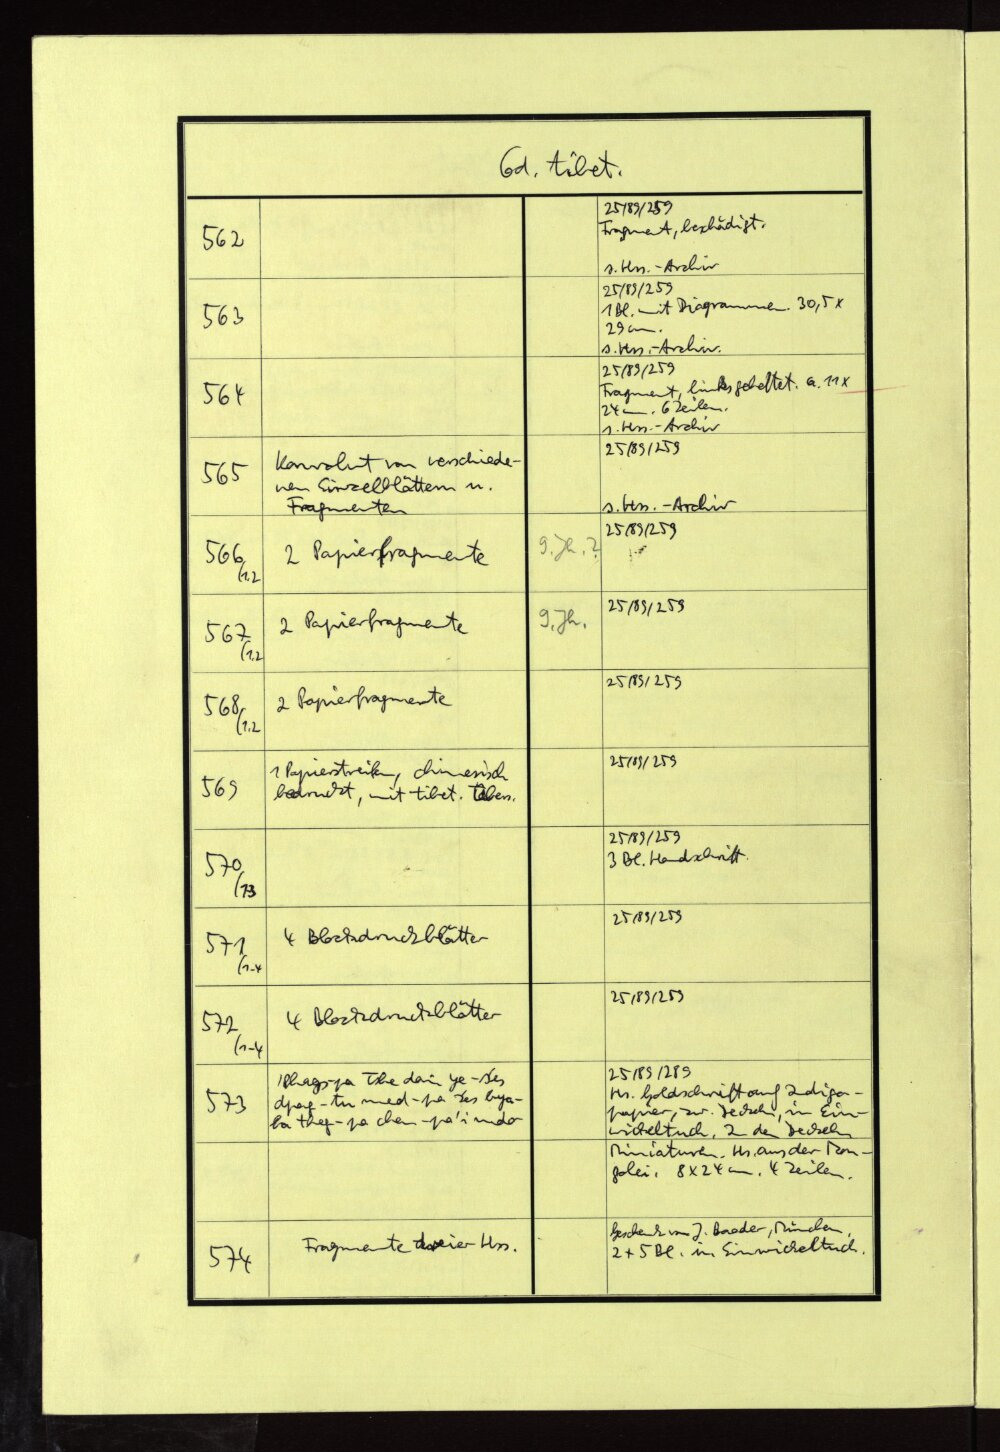 Cod. tibet.
562
25/89/259
Fragment, beschädigt.
s. Hss.-Archiv
563
25/89/259
1 Bl. mit Diagrammen. 30,5 x
29 cm.
s. Hss.-Archiv.
564
25/89/259
Fragment, links geheftet. 11 x
24 cm. 6 Zeilen.
s. Hss.-Archiv
565
Konvolut von verschiede-
nen Einzelblättern u.
Fragmenten
25/89/259
s. Hss.-Archiv
566
(1.2
2 Papierfragmente
9. Jh.?
25/89/259
567
(1.2
2 Papierfragmente
9. Jh.
25/89/259
568
(1.2
2 Papierfragmente
25/89/259
569
1 Papierstreifen, chinesisch
bedruckt, mit tibet.
25/89/259
570
25/89/259
3 Bl. Handschrift.
571
(1-4
4 Blockdruckblätter
25/89/259
572
(1-4
4 Blockdruckblätter
25/89/259
573
'Phags-pa Tshe dan ye-šes
dpag-tu med-pa žes bya-
ba theg-pa chen-pa'i mdo
25/89/289
Hs. Goldschrift auf Indigo-
papier, zw. Deckeln, in Ein-
wickeltuch. In den Deckeln
Miniaturen. Hs. aus der Mon-
golei. 8 x 24 cm. 4 Zeilen.
574
Fragmente Hss.
Geschenk von J. Baader, München.
2 + 5 Bl. in Einwickeltuch.